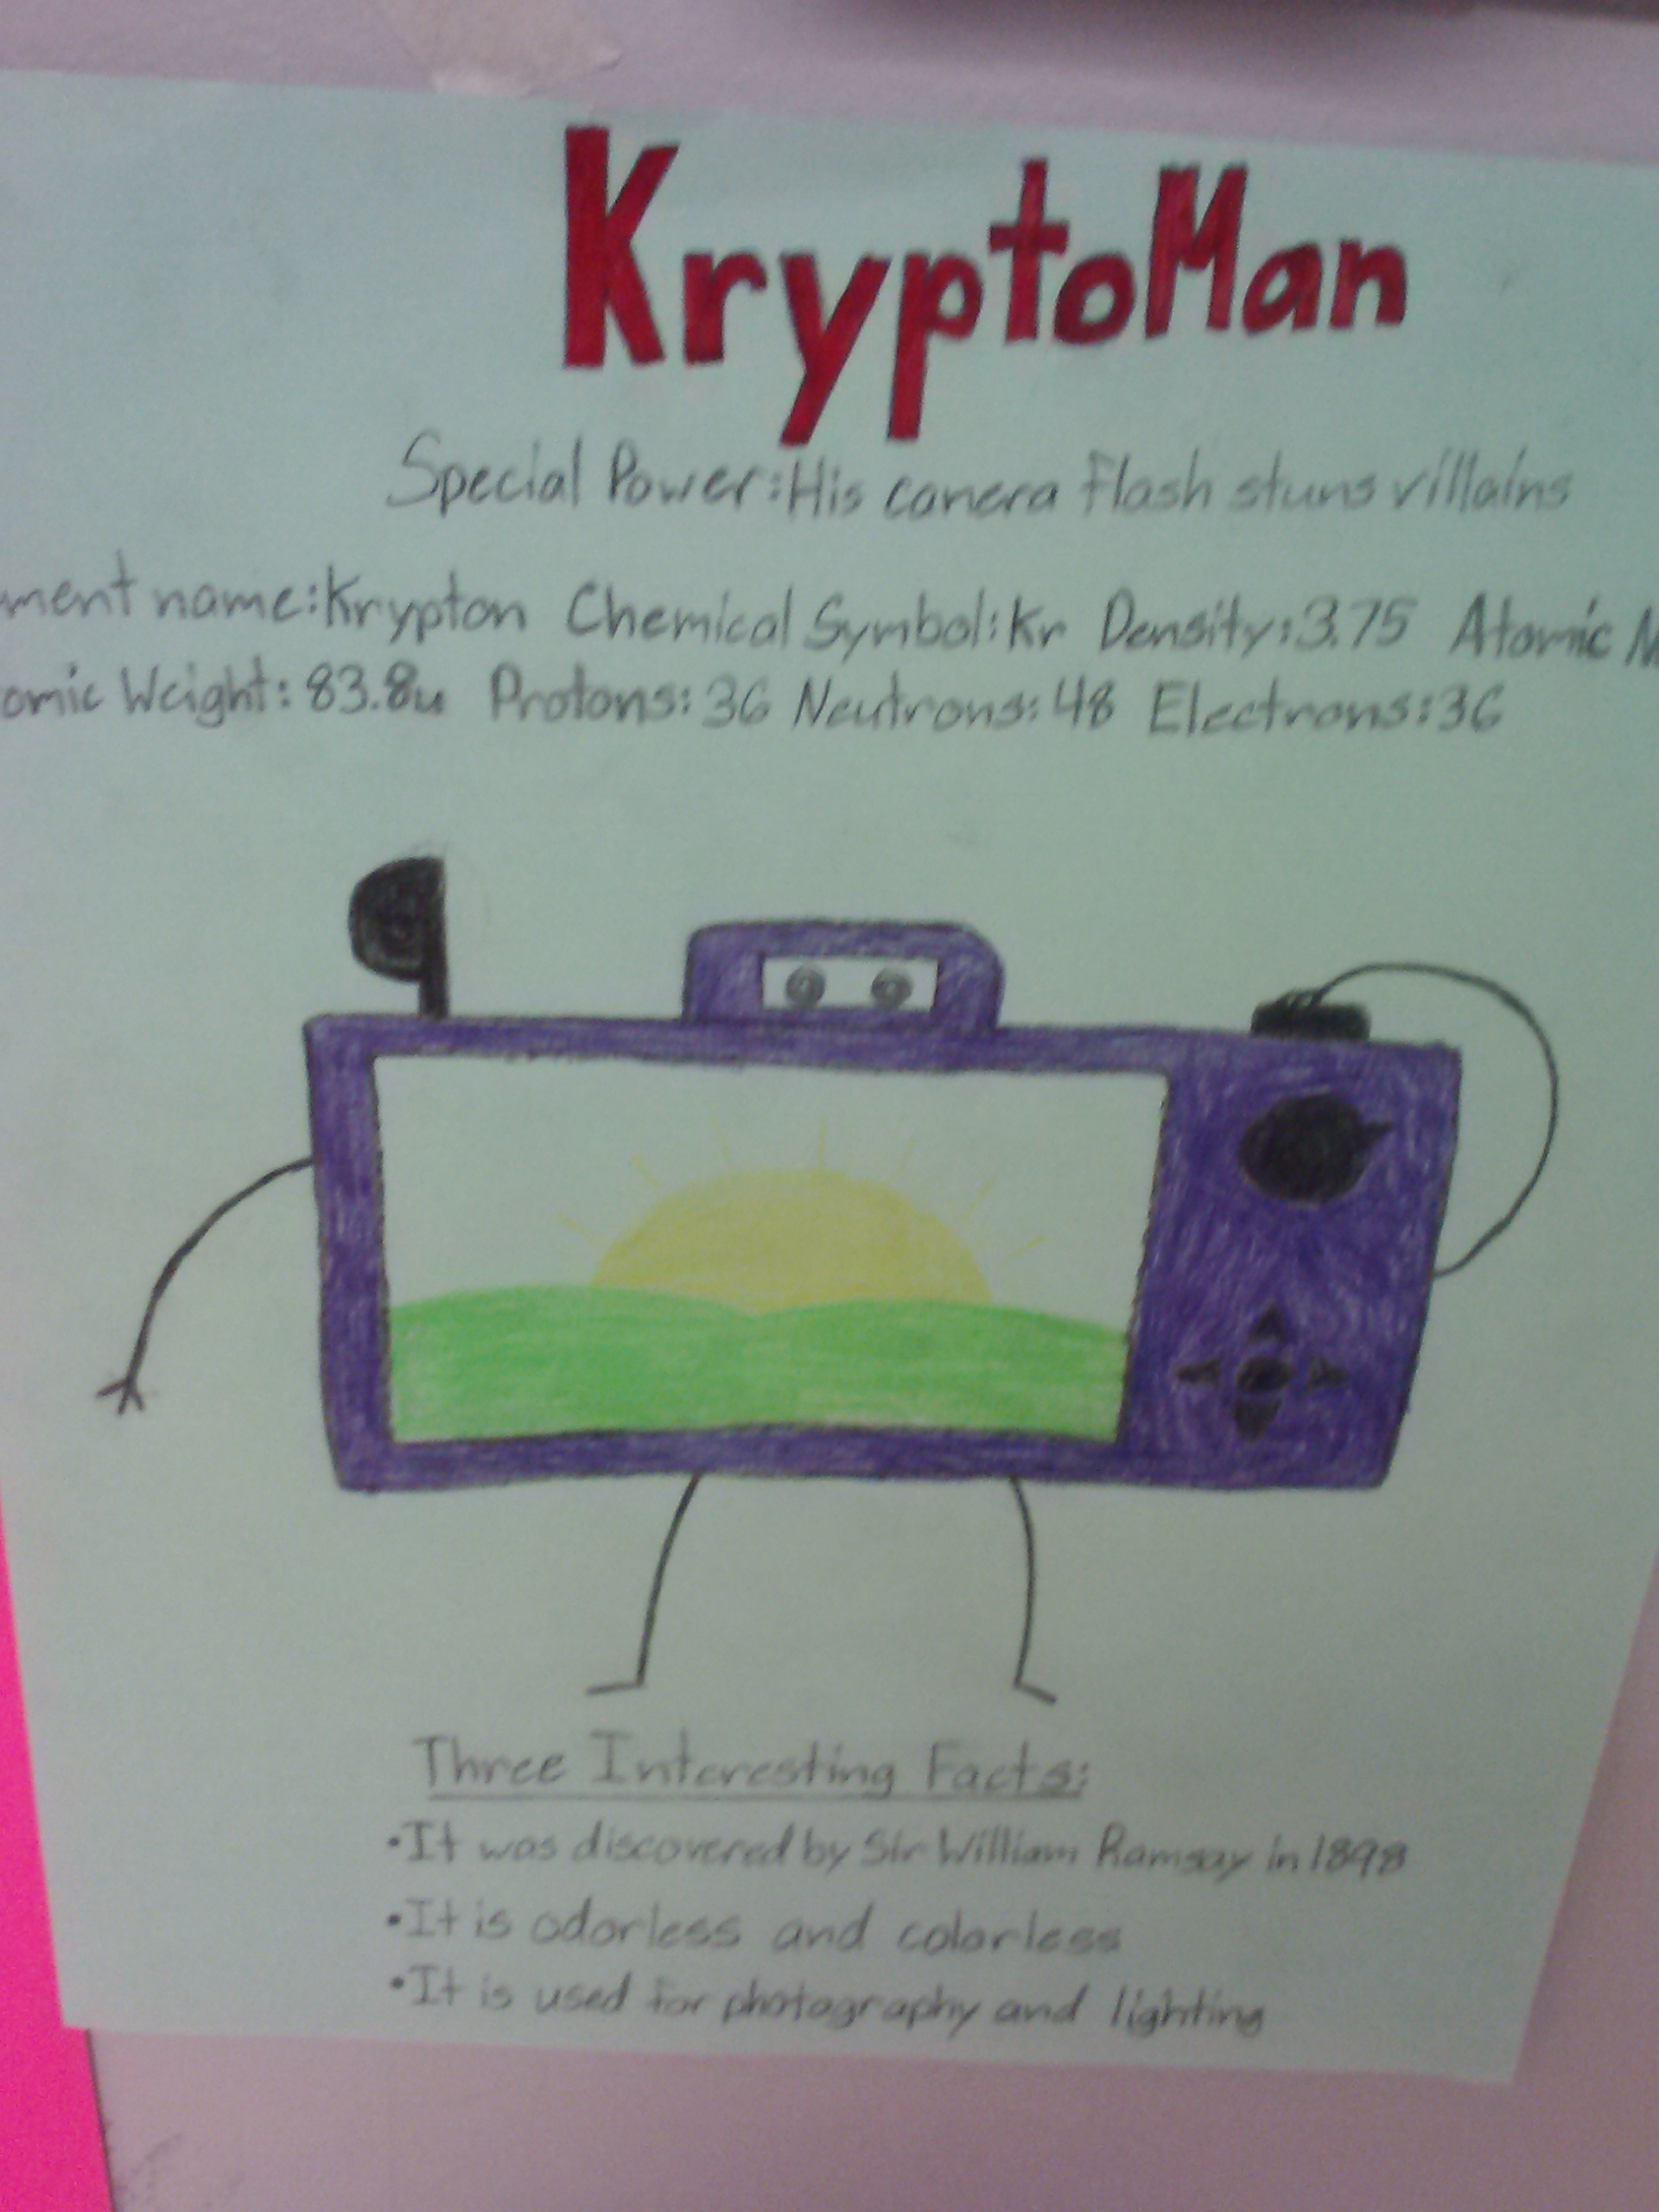 KryptoMan
Special Power: His camera flash stuns villains
ment name: Krypton Chemical Symbol: Kr Density: 3.75 Atomic
omic Weight: 83.8u Protons: 36 Neutrons: 48 Electrons: 36
Three Interesting Facts:
• It was discovered by Sir William Ramsay in 1898
• It is odorless and colorless
• It is used for photography and lighting